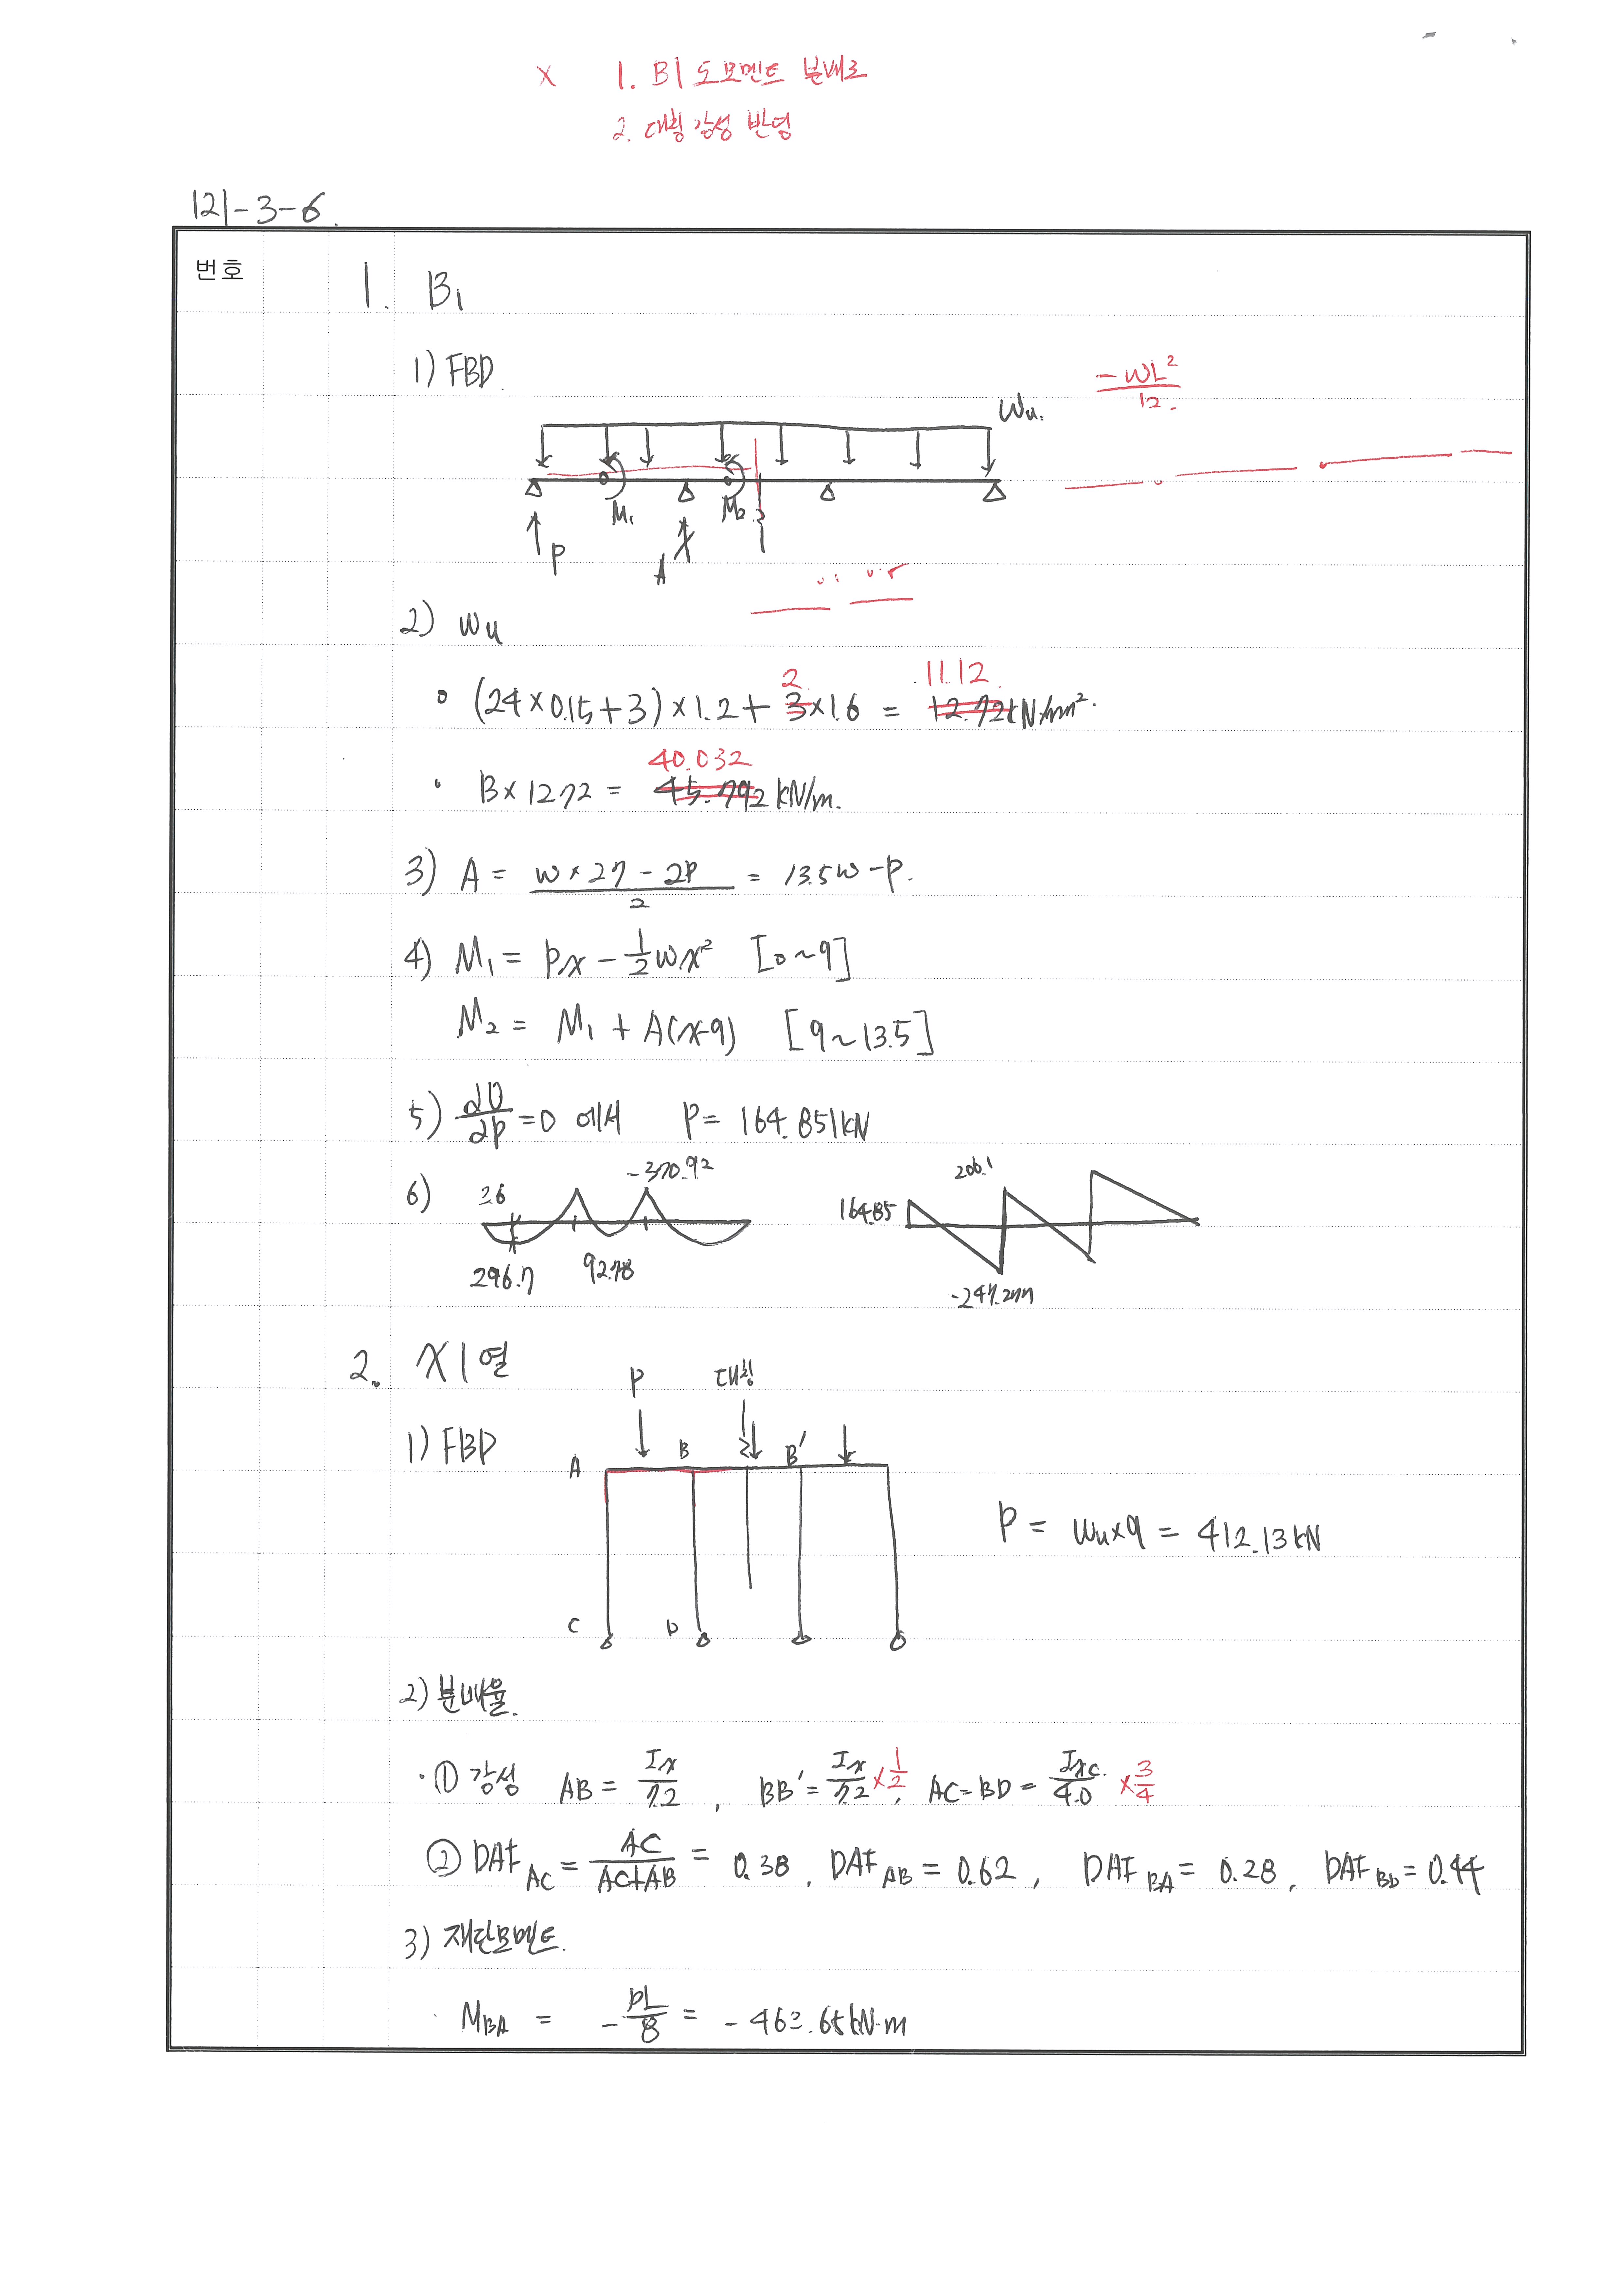 X 1. B1 도 모멘트 분배로
2. 대칭 강성 반영
121-3-6.
번호
1. B₁
1) FBD.
-wL²/12.
Wu.
M₁ M₂
P A
2) Wu
∘ (24×0.15+3)×1.2+3×1.6 = 12.72kN/mm².
2 11.12
· B×12.72 = 45.792 kN/m.
40.032
3) A = (w×27-2P)/2 = 13.5w-P.
4) M₁ = Px - 1/2wx² [0~9]
M₂ = M₁ + A(x-9) [9~13.5]
5) ∂U/∂P = 0 에서 P = 164.851kN
6) 3.6 -370.92 296.7 92.78
164.85 206.1 -247.277
2. X1열
1) FBD
P 대칭
A B B'
C D
P = Wu×9 = 412.13kN
2) 분배율.
·① 강성 AB = Ix/7.2, BB' = Ix/7.2 ×1/2, AC=BD = Ixc/4.0 ×3/4
② DAF AC = AC/(AC+AB) = 0.38, DAF AB = 0.62, DAF BA = 0.28, DAF BD = 0.44
3) 재단모멘트.
· M BA = -PL/8 = -463.65kN·m